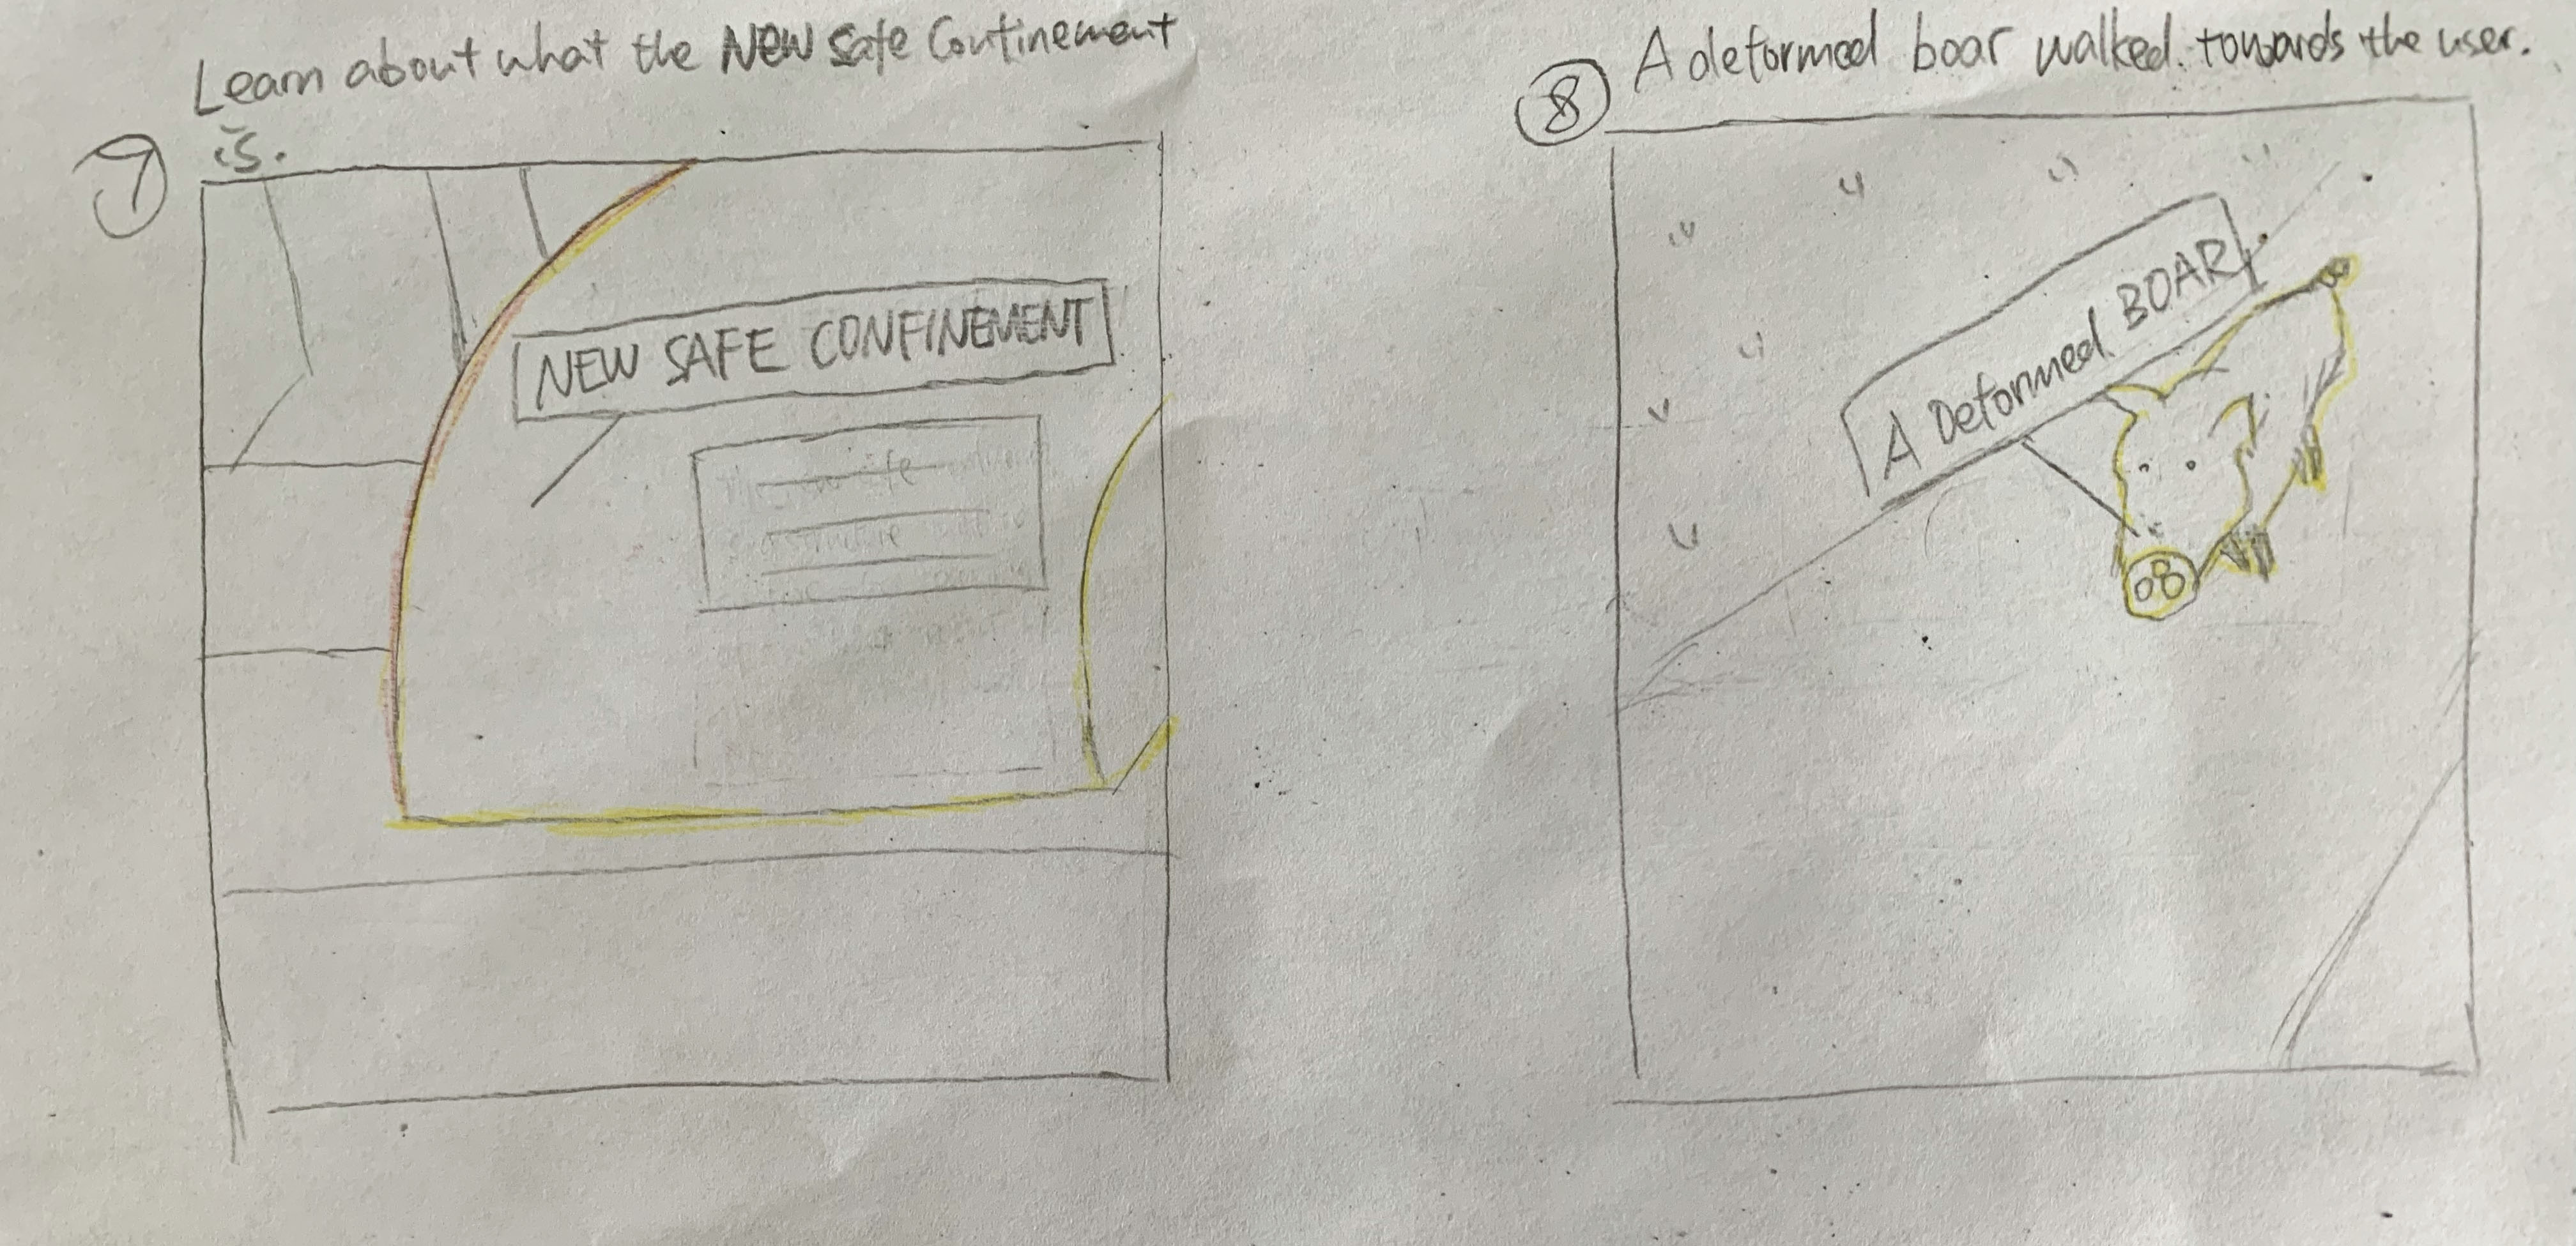 Learn about what the New Safe Confinement
is.
7
NEW SAFE CONFINEMENT
8
A deformed boar walked towards the user.
A Deformed BOAR